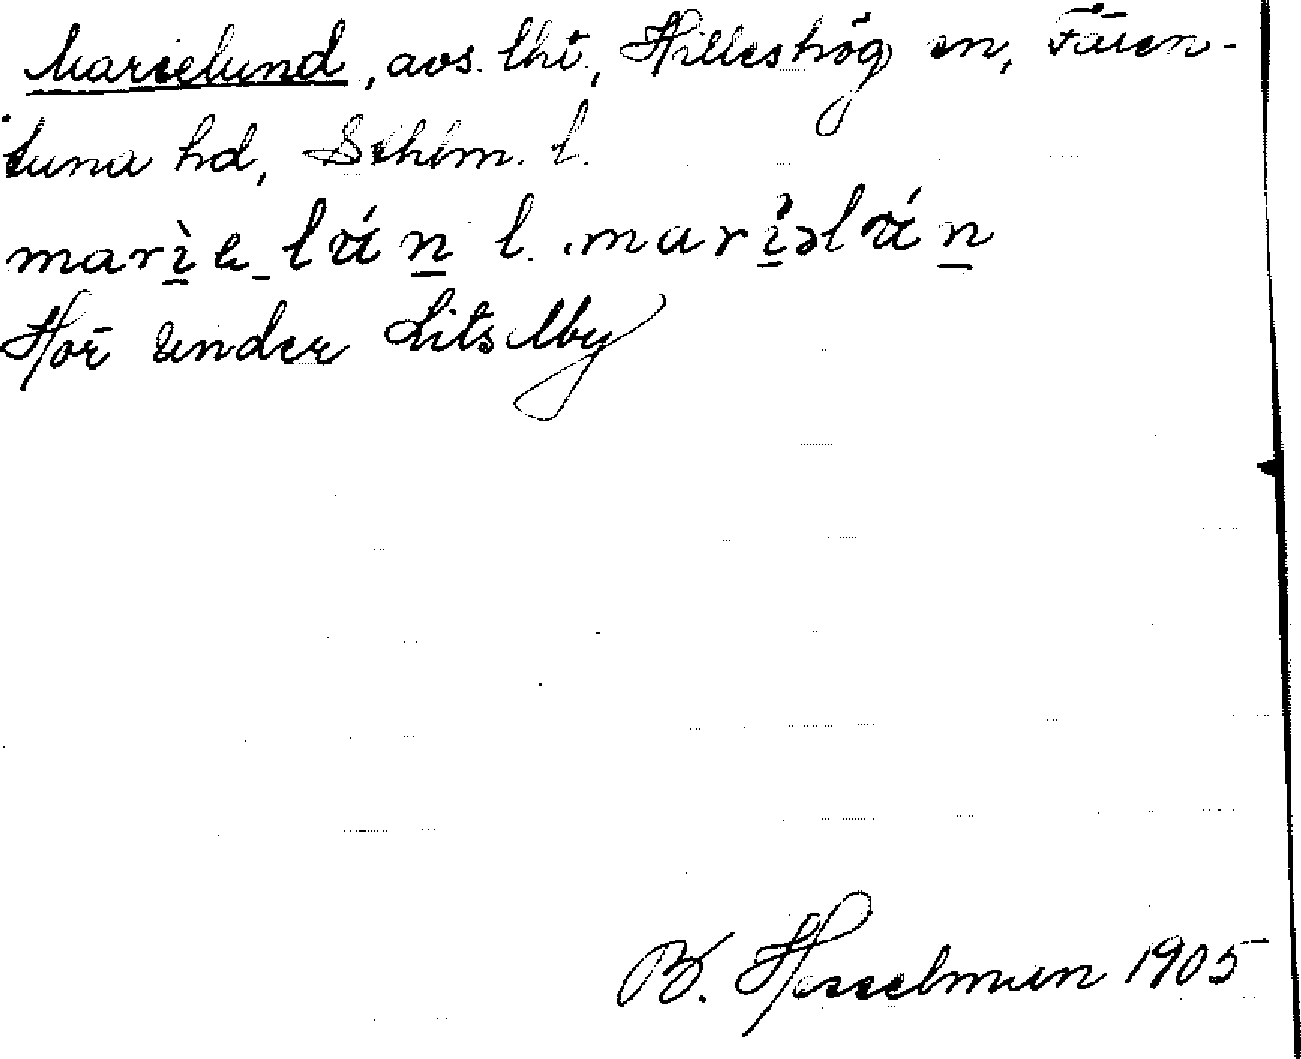 Marielund, avs. lht, Hilleshög sn, Fären-
tuna hd, Sthlm. l.
marìe_lún l. mariəlún
Hör under Lilsälby
B. Hesselman 1905